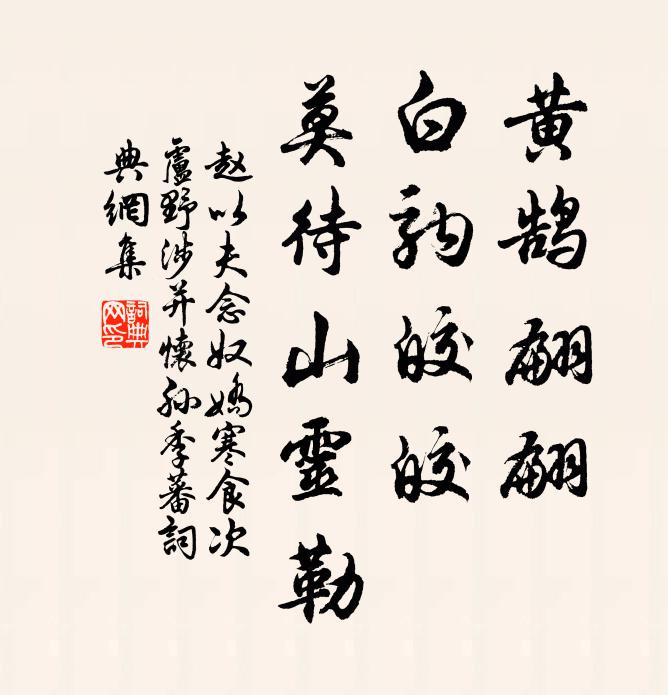 黄鹄翩翩
白駒皎皎
莫待山靈勒
赵以夫念奴嬌寒食次
盧野涉并懷孙季蕃詞
典網集
詞典網印